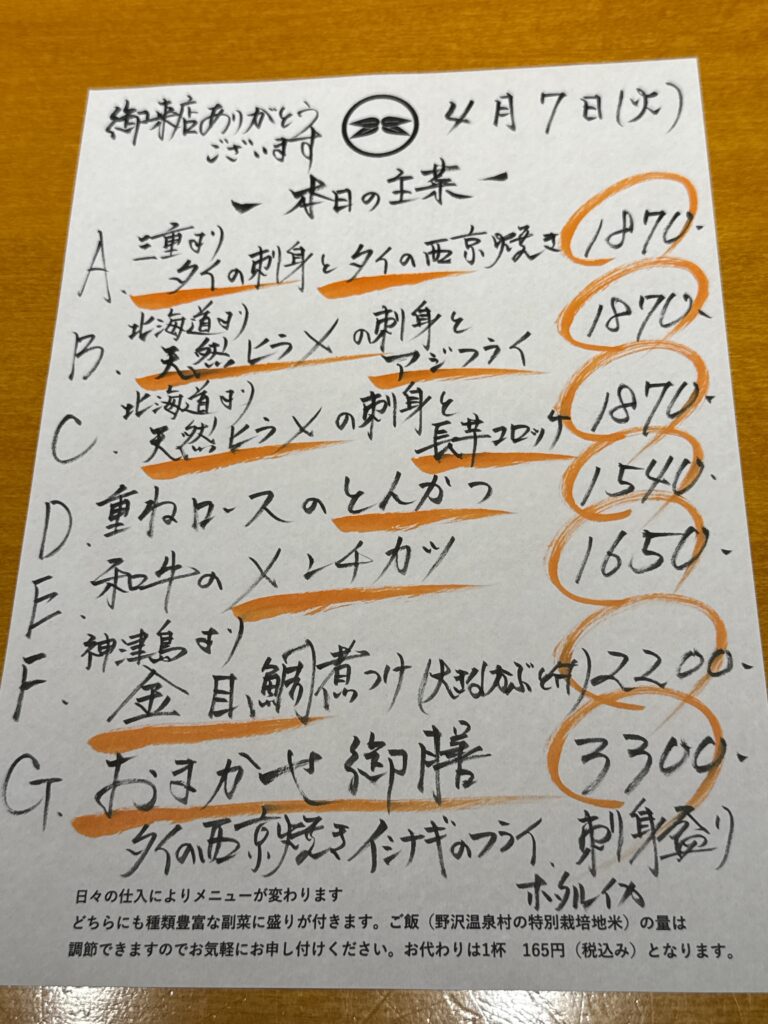 御来店ありがとう
ございます
4月7日(火)
- 本日の主菜 -
A. 三重より
タイの刺身とタイの西京焼き 1870.
B. 北海道より
天然ヒラメの刺身と
アジフライ 1870.
C. 北海道より
天然ヒラメの刺身と
長芋コロッケ 1870.
D. 重ねロースのとんかつ 1540.
E. 和牛のメンチカツ 1650.
F. 神津島より
金目鯛煮つけ 2200.
G. おまかせ御膳 3300.
タイの西京焼きイシナギのフライ、刺身盛り
ホタルイカ
日々の仕入によりメニューが変わります
どちらにも種類豊富な副菜に盛りが付きます。ご飯（野沢温泉村の特別栽培地米）の量は
調節できますのでお気軽にお申し付けください。お代わりは1杯 165円（税込み）となります。